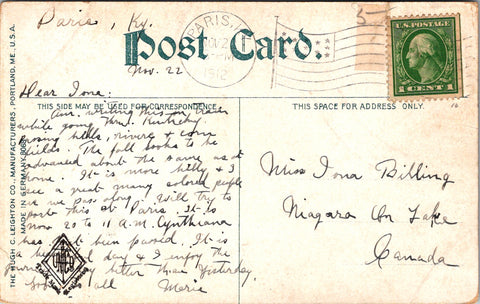 Paris, Ky.
Nov. 22
Post Card.
PARIS,
NOV 2
1912
U.S. POSTAGE
1 CENT 1
THIS SIDE MAY BE USED FOR CORRESPONDENCE.
THIS SPACE FOR ADDRESS ONLY.
THE HUGH C. LEIGHTON CO., MANUFACTURERS, PORTLAND, ME., U.S.A.
MADE IN GERMANY.
Dear Iona:
Am writing this on train
while going thru Kentucky
among hills, rivers & corn
fields. The fall looks to be
advanced about the same as at
home. It is more hilly & I
see a great many colored people
as we pass along. Will try to
post this at Paris. It is
now 20 to 11 A.M. Cynthiana
has just been passed. It is
a day & I enjoy the
better than yesterday
all
Marie
Miss Iona Billing
Niagara On Lake
Canada